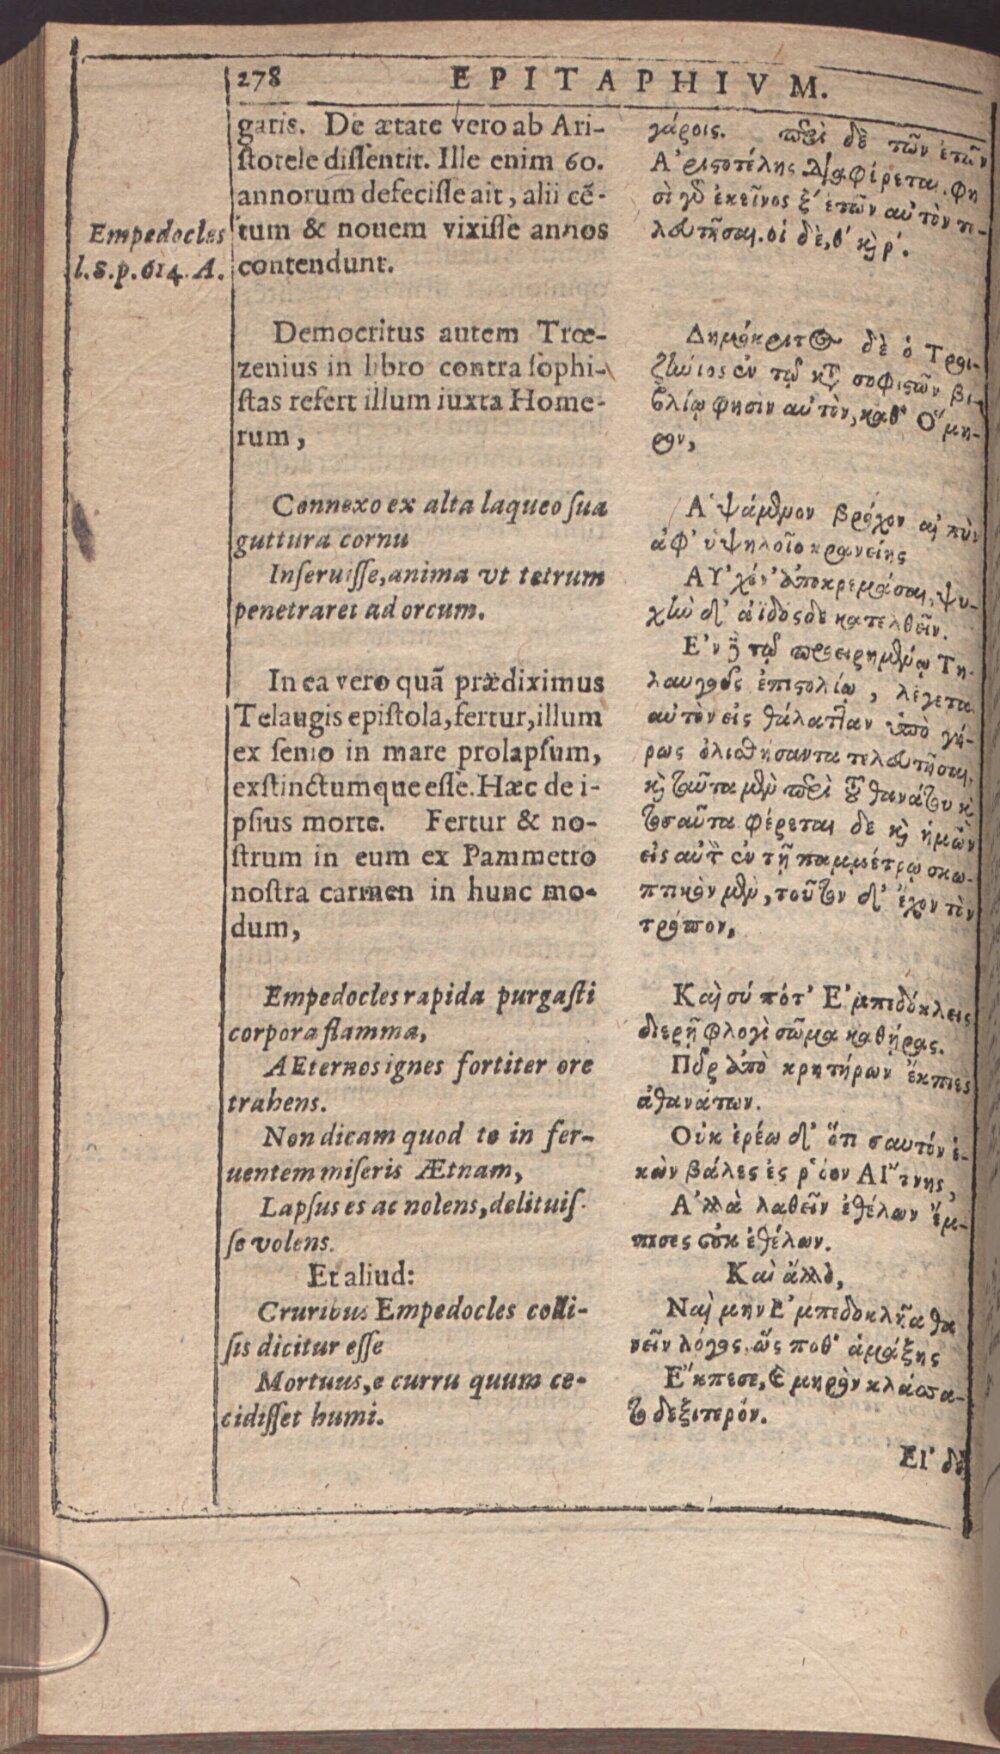 278 EPITAPHIVM.
Empedocles
l.8.p.614.A.
garis. De ætate vero ab Ari-
ſtotele diſſentit. Ille enim 60.
annorum defeciſſe ait, alii cẽ-
tum & nouem vixiſſe annos
contendunt.
Democritus autem Trœ-
zenius in libro contra ſophi-
ſtas refert illum iuxta Home-
rum,
Connexo ex alta laqueo ſua
guttura cornu
Inſeruiſſe, anima vt tetrum
penetraret ad orcum.
In ea vero quã prædiximus
Telaugis epiſtola, fertur, illum
ex ſenio in mare prolapſum,
exſtinctumque eſſe. Hæc de i-
pſius morte. Fertur & no-
ſtrum in eum ex Pammetro
noſtra carmen in hunc mo-
dum,
Empedocles rapida purgaſti
corpora flamma,
AEternos ignes fortiter ore
trahens.
Non dicam quod te in fer-
uentem miſeris Ætnam,
Lapſus es ac nolens, delituiſ-
ſe volens.
Et aliud:
Cruribus Empedocles colli-
ſis dicitur eſſe
Mortuus, e curru quum ce-
cidiſſet humi.
γάροις. περὶ δὲ τῶν ἐτῶν
Ἀριςοτέλης διαφέρεται. φη
σὶ γὸ ἐκεῖνος ξ΄ ἐτῶν αὐτὸν τε-
λευτῆσαι. οἱ δὲ, θ΄ κὶ ρ΄.
Δημόκριτος δὲ ὁ Τροι-
ζήνιος ἐν τῷ κτ σοφιςῶν βι-
βλίῳ φησὶν αὐτὸν, καθ' Ὅμη-
ρον,
Ἁψάμενον βρόχον αἰπὺν
ἀφ' ὑψηλοῖο κρανείης
ΑΥ̓χέν' ἀποκρεμάσαι, ψυ-
χὴν δ' ἀϊδόςδε κατελθεῖν.
Ἐν δὲ τῷ προειρημένῳ Τη-
λαυγοῦς ἐπιςολίῳ, λέγεται
αὐτὸν εἰς θάλατταν ὑπὸ γή-
ρως ὀλιοθήσαντα τελευτῆσαι,
κὶ ταῦτα μὲν περὶ τοῦ θανάτου κὶ
τοσαῦτα φέρεται δε κὶ ἡμῶν
εἰς αὐτὸν ἐν τῇ παμμέτρῳ σκω-
πτικὸν μὲν, τοῦτον δ' ἔχον τὸν
τρόπον,
Καὶ σύ πότ' Ἐμπεδόκλεις
διερῇ φλογὶ σῶμα καθήρας.
Πῦρ ἀπὸ κρητήρων ἔκπιες
ἀθανάτων.
Οὐκ ἐρέω δ' ὅτι σαυτόν ἑ-
κὼν βάλες ἐς ῥόον ΑΙ῎τνης,
Ἀλλὰ λαθεῖν ἐθέλων ἔμ-
πεσες οὐκ ἐθέλων.
Καὶ ἄλλο,
Ναὶ μὴν Ἐμπεδοκλῆα θα
νεῖν λόγος. ὥς ποθ' ἀμάξης
Ἔκπεσε, ϗ μηρὸν κλάσσα-
το δεξιτερόν.
ΕἸ δὲ